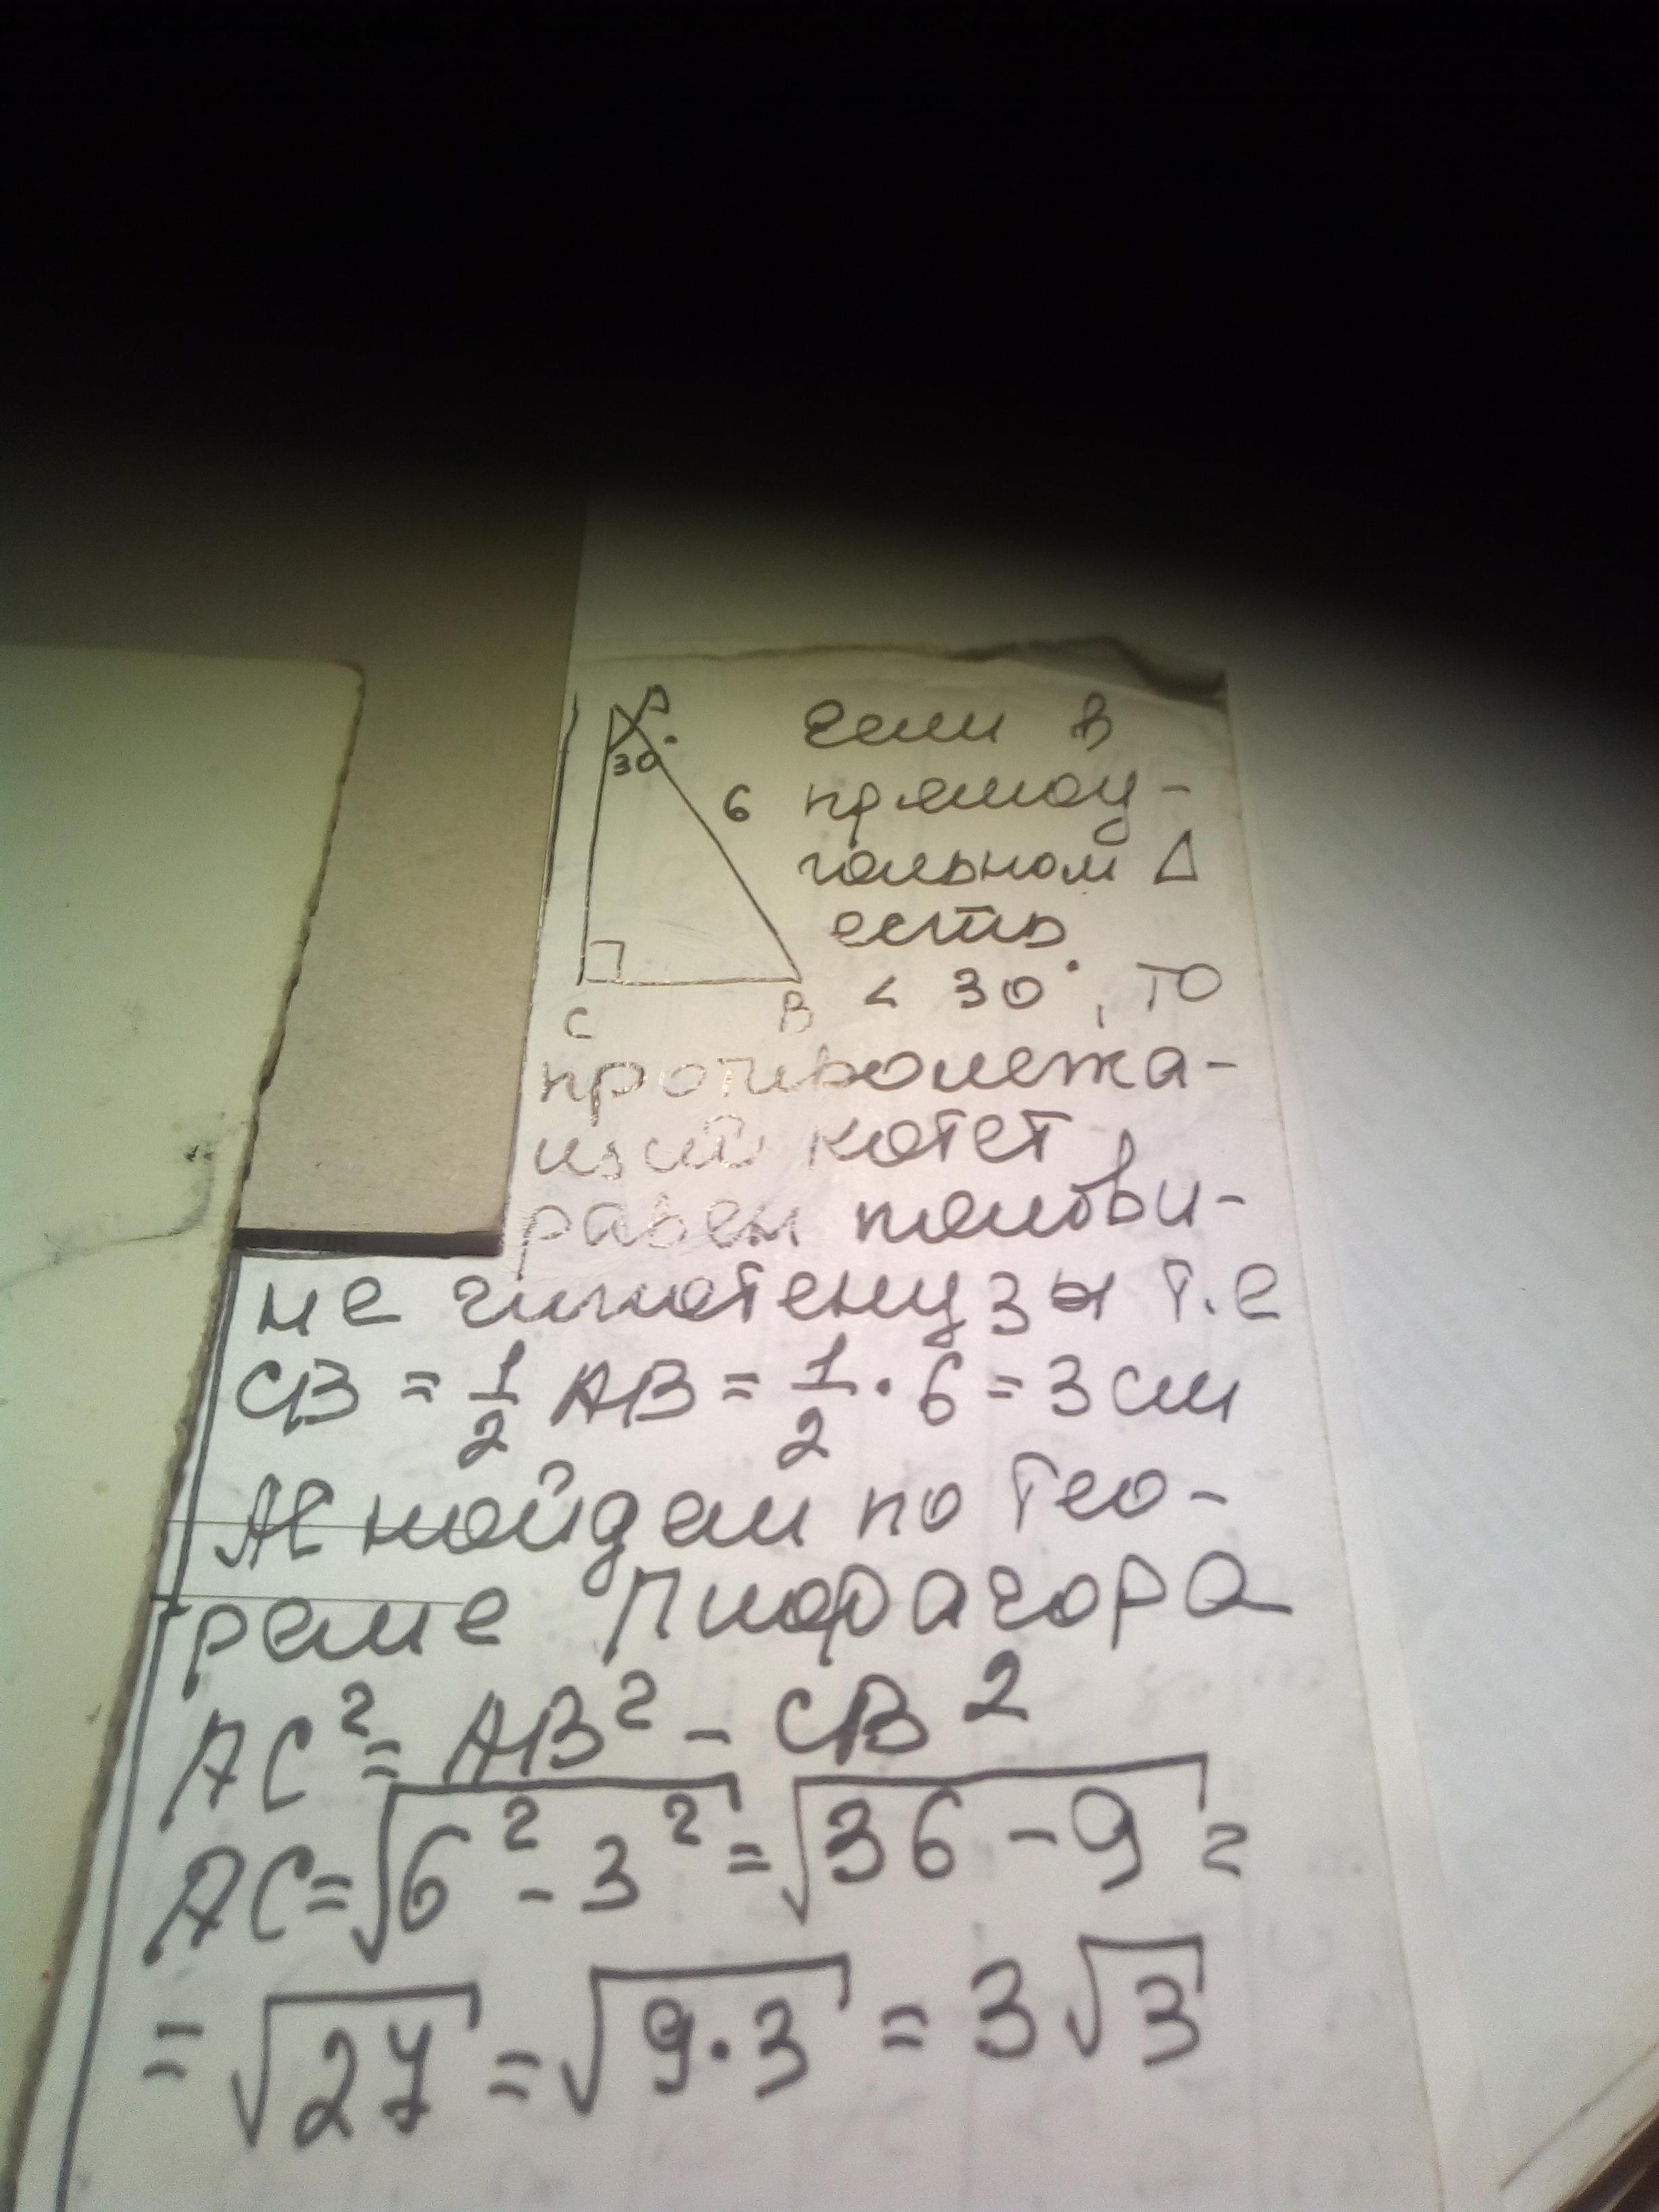 A
30°
6
C
B
Если в
прямоу-
гольном Δ
есть
< 30°, то
противолежа-
щий котет
равен полови-
не гипотенузы т.е
CB = 1/2 AB = 1/2 · 6 = 3 см
AC найдем по тео-
реме Пифагора
AC² = AB² - CB²
AC = √(6² - 3²) = √(36 - 9) =
= √27 = √(9·3) = 3√3